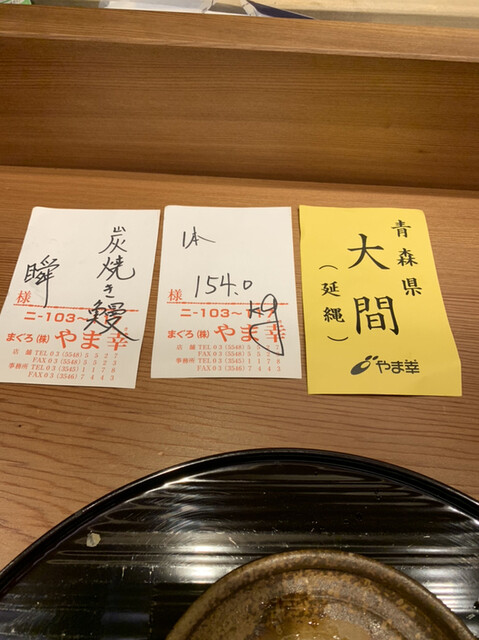 炭焼き鰻
瞬
様
ニ-103~
まぐろ(株)やま幸
店舗 TEL 03(3548)5527
FAX 03(3548)5
事務所 TEL 03(3545)1178
FAX 03(3546)7443
1本
154.0
kg
様
ニ-103~
まぐろ(株)やま幸
店舗 TEL 03(3548)
FAX 03(3548)
事務所 TEL 03(3545)1178
FAX 03(3546)7443
青森県
大間
(延縄)
やま幸